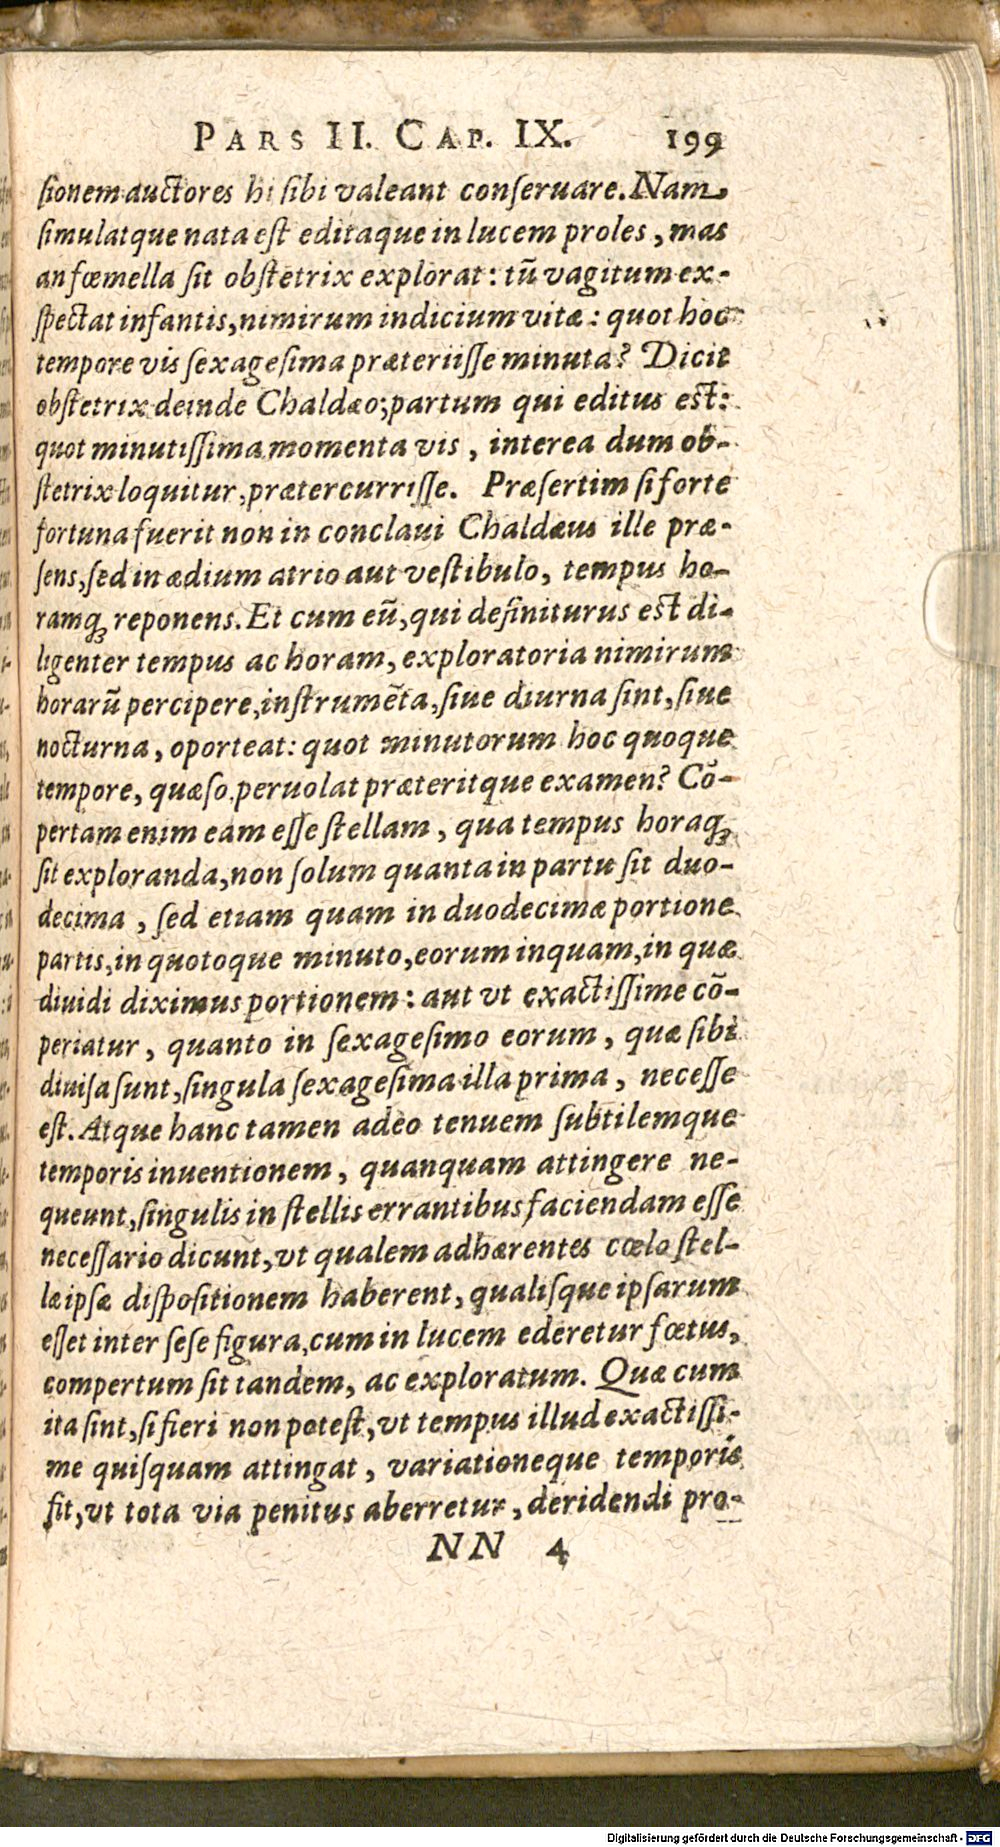 PARS II. CAP. IX. 199
ſionem auctores hi ſibi valeant conſeruare. Nam
ſimulatque nata eſt editaque in lucem proles, mas
an fœmella ſit obſtetrix explorat: tū vagitum ex-
ſpectat infantis, nimirum indicium vitæ: quot hoc
tempore vis ſexageſima præteriiſſe minuta? Dicit
obſtetrix deinde Chaldæo; partum qui editus eſt:
quot minutiſſima momenta vis, interea dum ob-
ſtetrix loquitur, prætercurriſſe. Præſertim ſi forte
fortuna fuerit non in conclaui Chaldæus ille præ-
ſens, ſed in ædium atrio aut veſtibulo, tempus ho-
ramq́ꝫ reponens. Et cum eū, qui definiturus eſt di-
ligenter tempus ac horam, exploratoria nimirum
horarū percipere, inſtrumēta, ſiue diurna ſint, ſiue
nocturna, oporteat: quot minutorum hoc quoque
tempore, quæſo, peruolat præteritque examen? Cō-
pertam enim eam eſſe ſtellam, qua tempus horaqꝫ
ſit exploranda, non ſolum quanta in partu ſit duo-
decima, ſed etiam quam in duodecimæ portione
partis, in quotoque minuto, eorum inquam, in quæ
diuidi diximus portionem: aut vt exactiſſime cō-
periatur, quanto in ſexageſimo eorum, quæ ſibi
diuiſa ſunt, ſingula ſexageſima illa prima, neceſſe
eſt. Atque hanc tamen adeo tenuem ſubtilemque
temporis inuentionem, quanquam attingere ne-
queunt, ſingulis in ſtellis errantibus faciendam eſſe
neceſſario dicunt, vt qualem adhærentes cœlo ſtel-
læ ipſæ diſpoſitionem haberent, qualiſque ipſarum
eſſet inter ſeſe figura, cum in lucem ederetur fœtus,
compertum ſit tandem, ac exploratum. Quæ cum
ita ſint, ſi fieri non poteſt, vt tempus illud exactiſſi-
me quiſquam attingat, variationeque temporis
fit, vt tota via penitus aberretur, deridendi pro-
NN 4
Digitalisierung gefördert durch die Deutsche Forschungsgemeinschaft - DFG